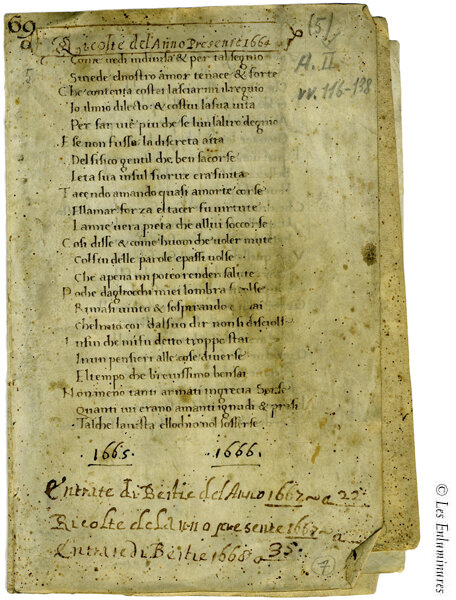 69
(5)
Ricolte del Anno Presense 1664
A. II
vv. 116-138
Come vedi indivisa & per tal segnio
Si vede el nostro amor tenace & forte
Che contenta costei lasciarmi il regnio
Io il mio dilecto & costui la sua vita
Per far vie piu che se lun laltro degnio
E se non fusse la discreta aita
Del fisico gentil che ben sacorse
Leta sua in sul fiorire era finita
Tacendo amando quasi a morte corse
El amar forza el tacer fu virtute
La mie vera pieta che allui soccorse
Cosi disse & come huom che voler mute
Col fin delle parole e passi volse
Che apena mi poteo render salute
Po che dagliocchi miei lombra si
Rimasi vinto & sospirando e mai
cor dal suo dir non si
Infin che mi fu detto troppo stai
In un pensieri alle cose diverse
El tempo che brevissimo ben sai
Non meno tanti armati in grecia Serse
Quanti ivi erano amanti ignudi &
Tal che la vista el lochio nol sofferse
1665. 1666.
Entrate di Bestie del Anno 1667 a 22
Ricolte del anno presente 1667 a
Entrate di Bestie 1668 a 35.
7
© Les Enluminures